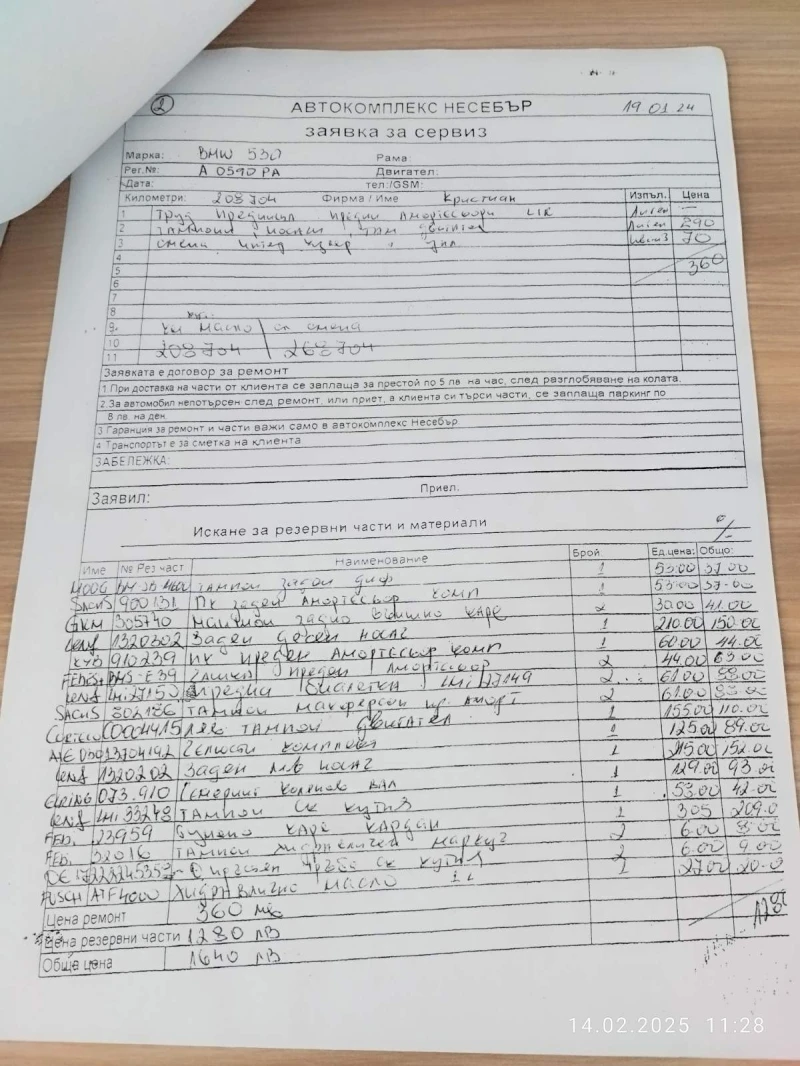 2 АВТОКОМПЛЕКС НЕСЕБЪР 19 01 24
заявка за сервиз
Марка: BMW 530 Рама:
Рег.№: А 0590 РА Двигател:
Дата: тел:/GSM:
Километри: 208704 Фирма / Име Кристиан Изпъл. Цена
1 Труд предни амортсьори
2 тампони носач двигател 290
3 смяна 70
4
5 360
6
7
8
9. км масло см смяна
10 208704 268704
11
Заявката е договор за ремонт
1 При доставка на части от клиента се заплаща за престой по 5 лв на час, след разглобяване на колата.
2.За автомобил непотърсен след ремонт, или приет, а клиента си търси части, се заплаща паркинг по
8 лв. на ден.
3 Гаранция за ремонт и части важи само в автокомплекс Несебър
4 Транспортът е за сметка на клиента
ЗАБЕЛЕЖКА:
Заявил: Приел.
Искане за резервни части и материали
Име № Рез част Наименование Брой Ед.цена: Общо:
MOOG тампон заден диф 1 53.00 37.00
SACHS 900131 ПК заден амортсьор комп 1 53.00 37.00
GKM 305740 маншон задно външно каре 2 30.00 41.00
Lemf 1320302 Заден десен носач 1 210.00 150.00
KYB 910239 ПК преден амортсьор комп 1 60.00 44.00
E39 преден амортсьор 2 44.00 63.00
Lemf 27150 предни биалетки 27149 2 61.00 88.00
SACHS 802186 тампон макферсон пр. аморт 2 61.00
ляв тампон двигател 1 155.00 110.00
ATE 13704192 челюсти комплект 1 125.00 89.00
Lemf 1320202 Заден ляв носач 1 215.00 152.00
ELRING 073.910 Семеринг колянов вал 1 129.00 93.00
Lemf 33248 тампон ск кутия 1 53.00 42.00
FEB. 23959 каре кардан 1 305 209.0
FEB. 32016 тампон маркуч 2 6.00
ск кутия 2 6.00 9.00
FUSCH ATF4000 хидравлично масло 1L 1 27.00 20.0
Цена ремонт 360 лв
Цена резервни части 1280 лв
Обща цена 1640 лв
14.02.2025 11:28